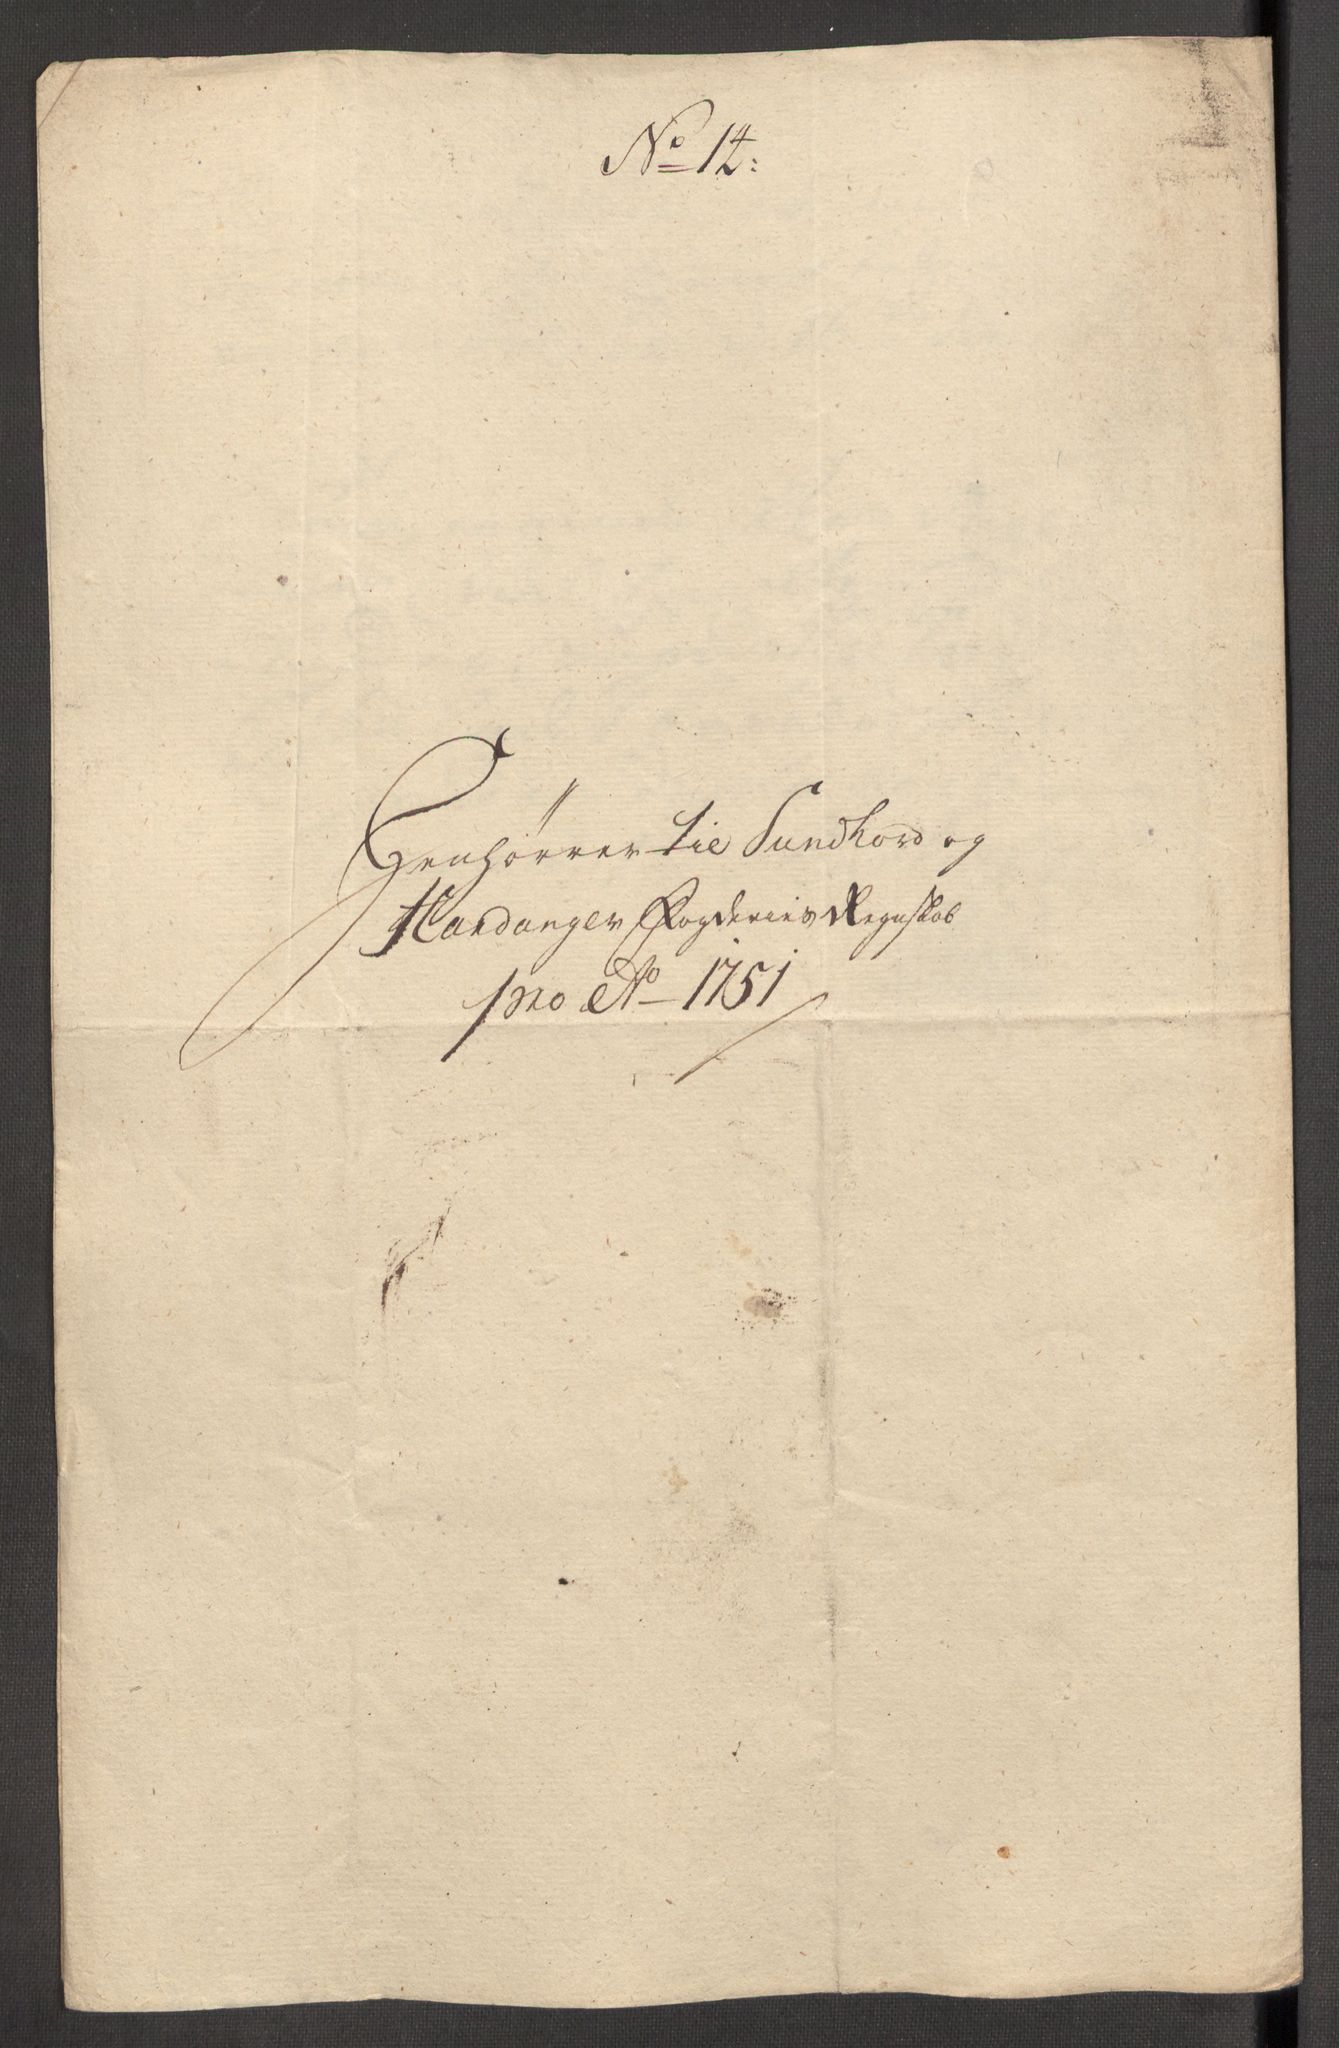 No 14:
Henhörrer til Sundhord og
Hardanger Fogderies Regnskab
pro Ao 1751